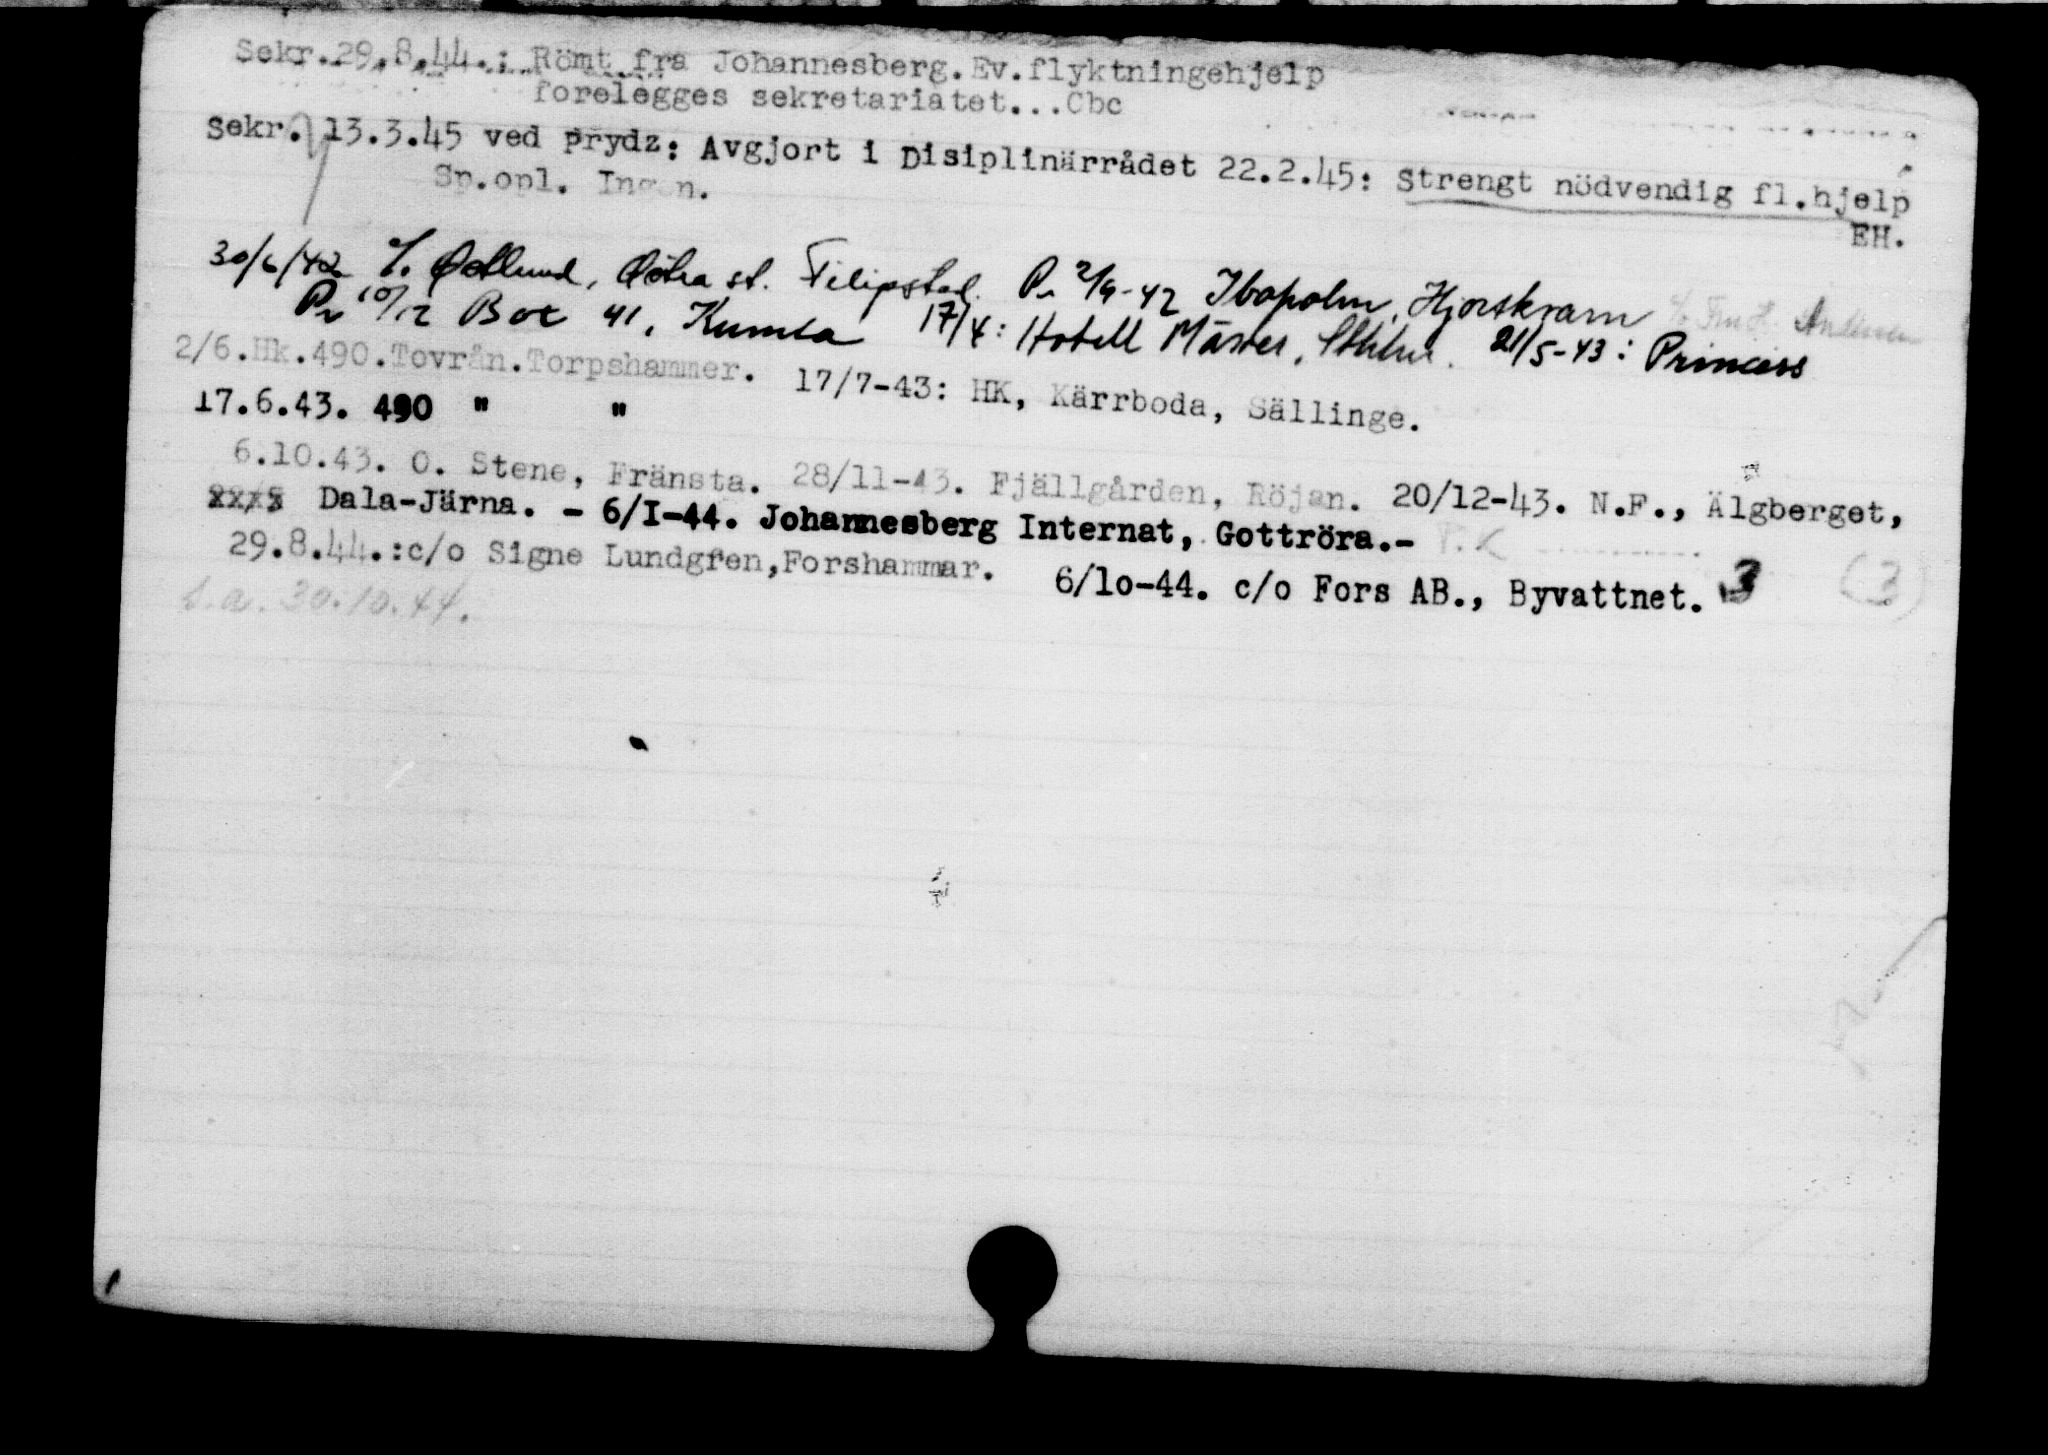 Sekr.29.8.44.: Römt fra Johannesberg.Ev.flyktningehjelp
forelegges sekretariatet...Cbc
Sekr. 13.3.45 ved Prydz: Avgjort i Disiplinärrådet 22.2.45: Strengt nödvendig fl.hjelp
Sp.opl. Ingen.
EH.
30/6/42 c/o Östlund, Östra st. Filipstad. Pr 2/9-42 Hjorskvarn c/o Andersen
Pr 10/12 Box 41, Kumla 17/4: Hotell Mäster, Sthlm. 21/5-43: Princess
2/6.Hk.490.Tovrån.Torpshammer. 17/7-43: HK, Kärrboda, Sällinge.
17.6.43. 490 " "
6.10.43. O. Stene, Fränsta. 28/11-43. Fjällgården, Röjan. 20/12-43. N.F., Älgberget,
Dala-Järna. - 6/I-44. Johannesberg Internat, Gottröra.-
29.8.44.:c/o Signe Lundgren,Forshammar. 6/10-44. c/o Fors AB., Byvattnet. 3 (3)
s.a. 30.10.44.